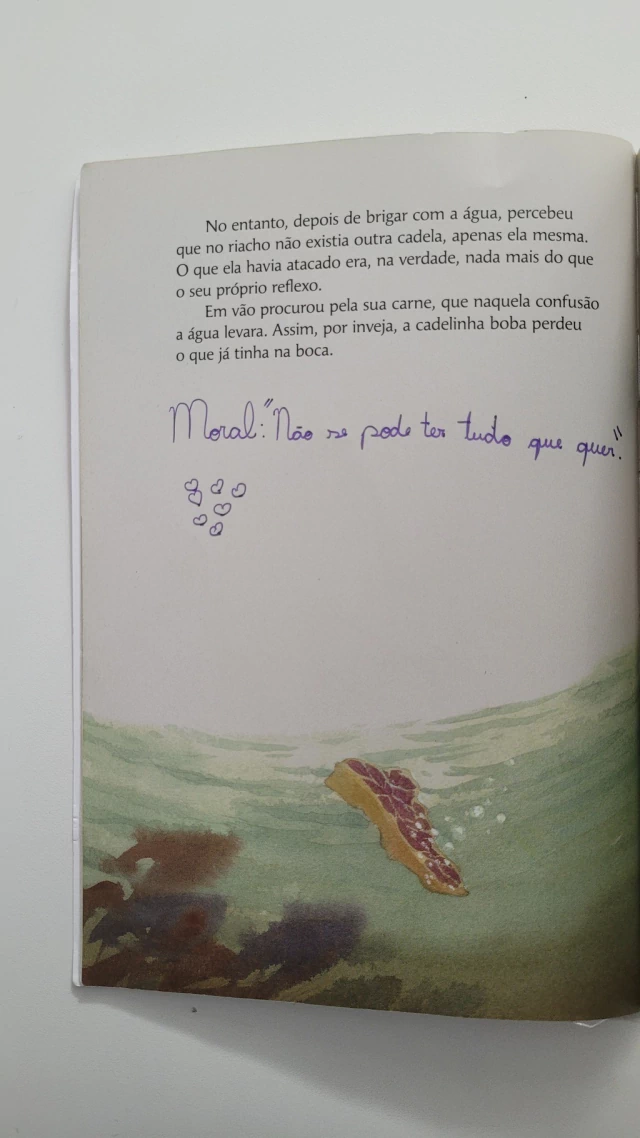 No entanto, depois de brigar com a água, percebeu
que no riacho não existia outra cadela, apenas ela mesma.
O que ela havia atacado era, na verdade, nada mais do que
o seu próprio reflexo.
Em vão procurou pela sua carne, que naquela confusão
a água levara. Assim, por inveja, a cadelinha boba perdeu
o que já tinha na boca.
Moral: "Não se pode ter tudo que quer".